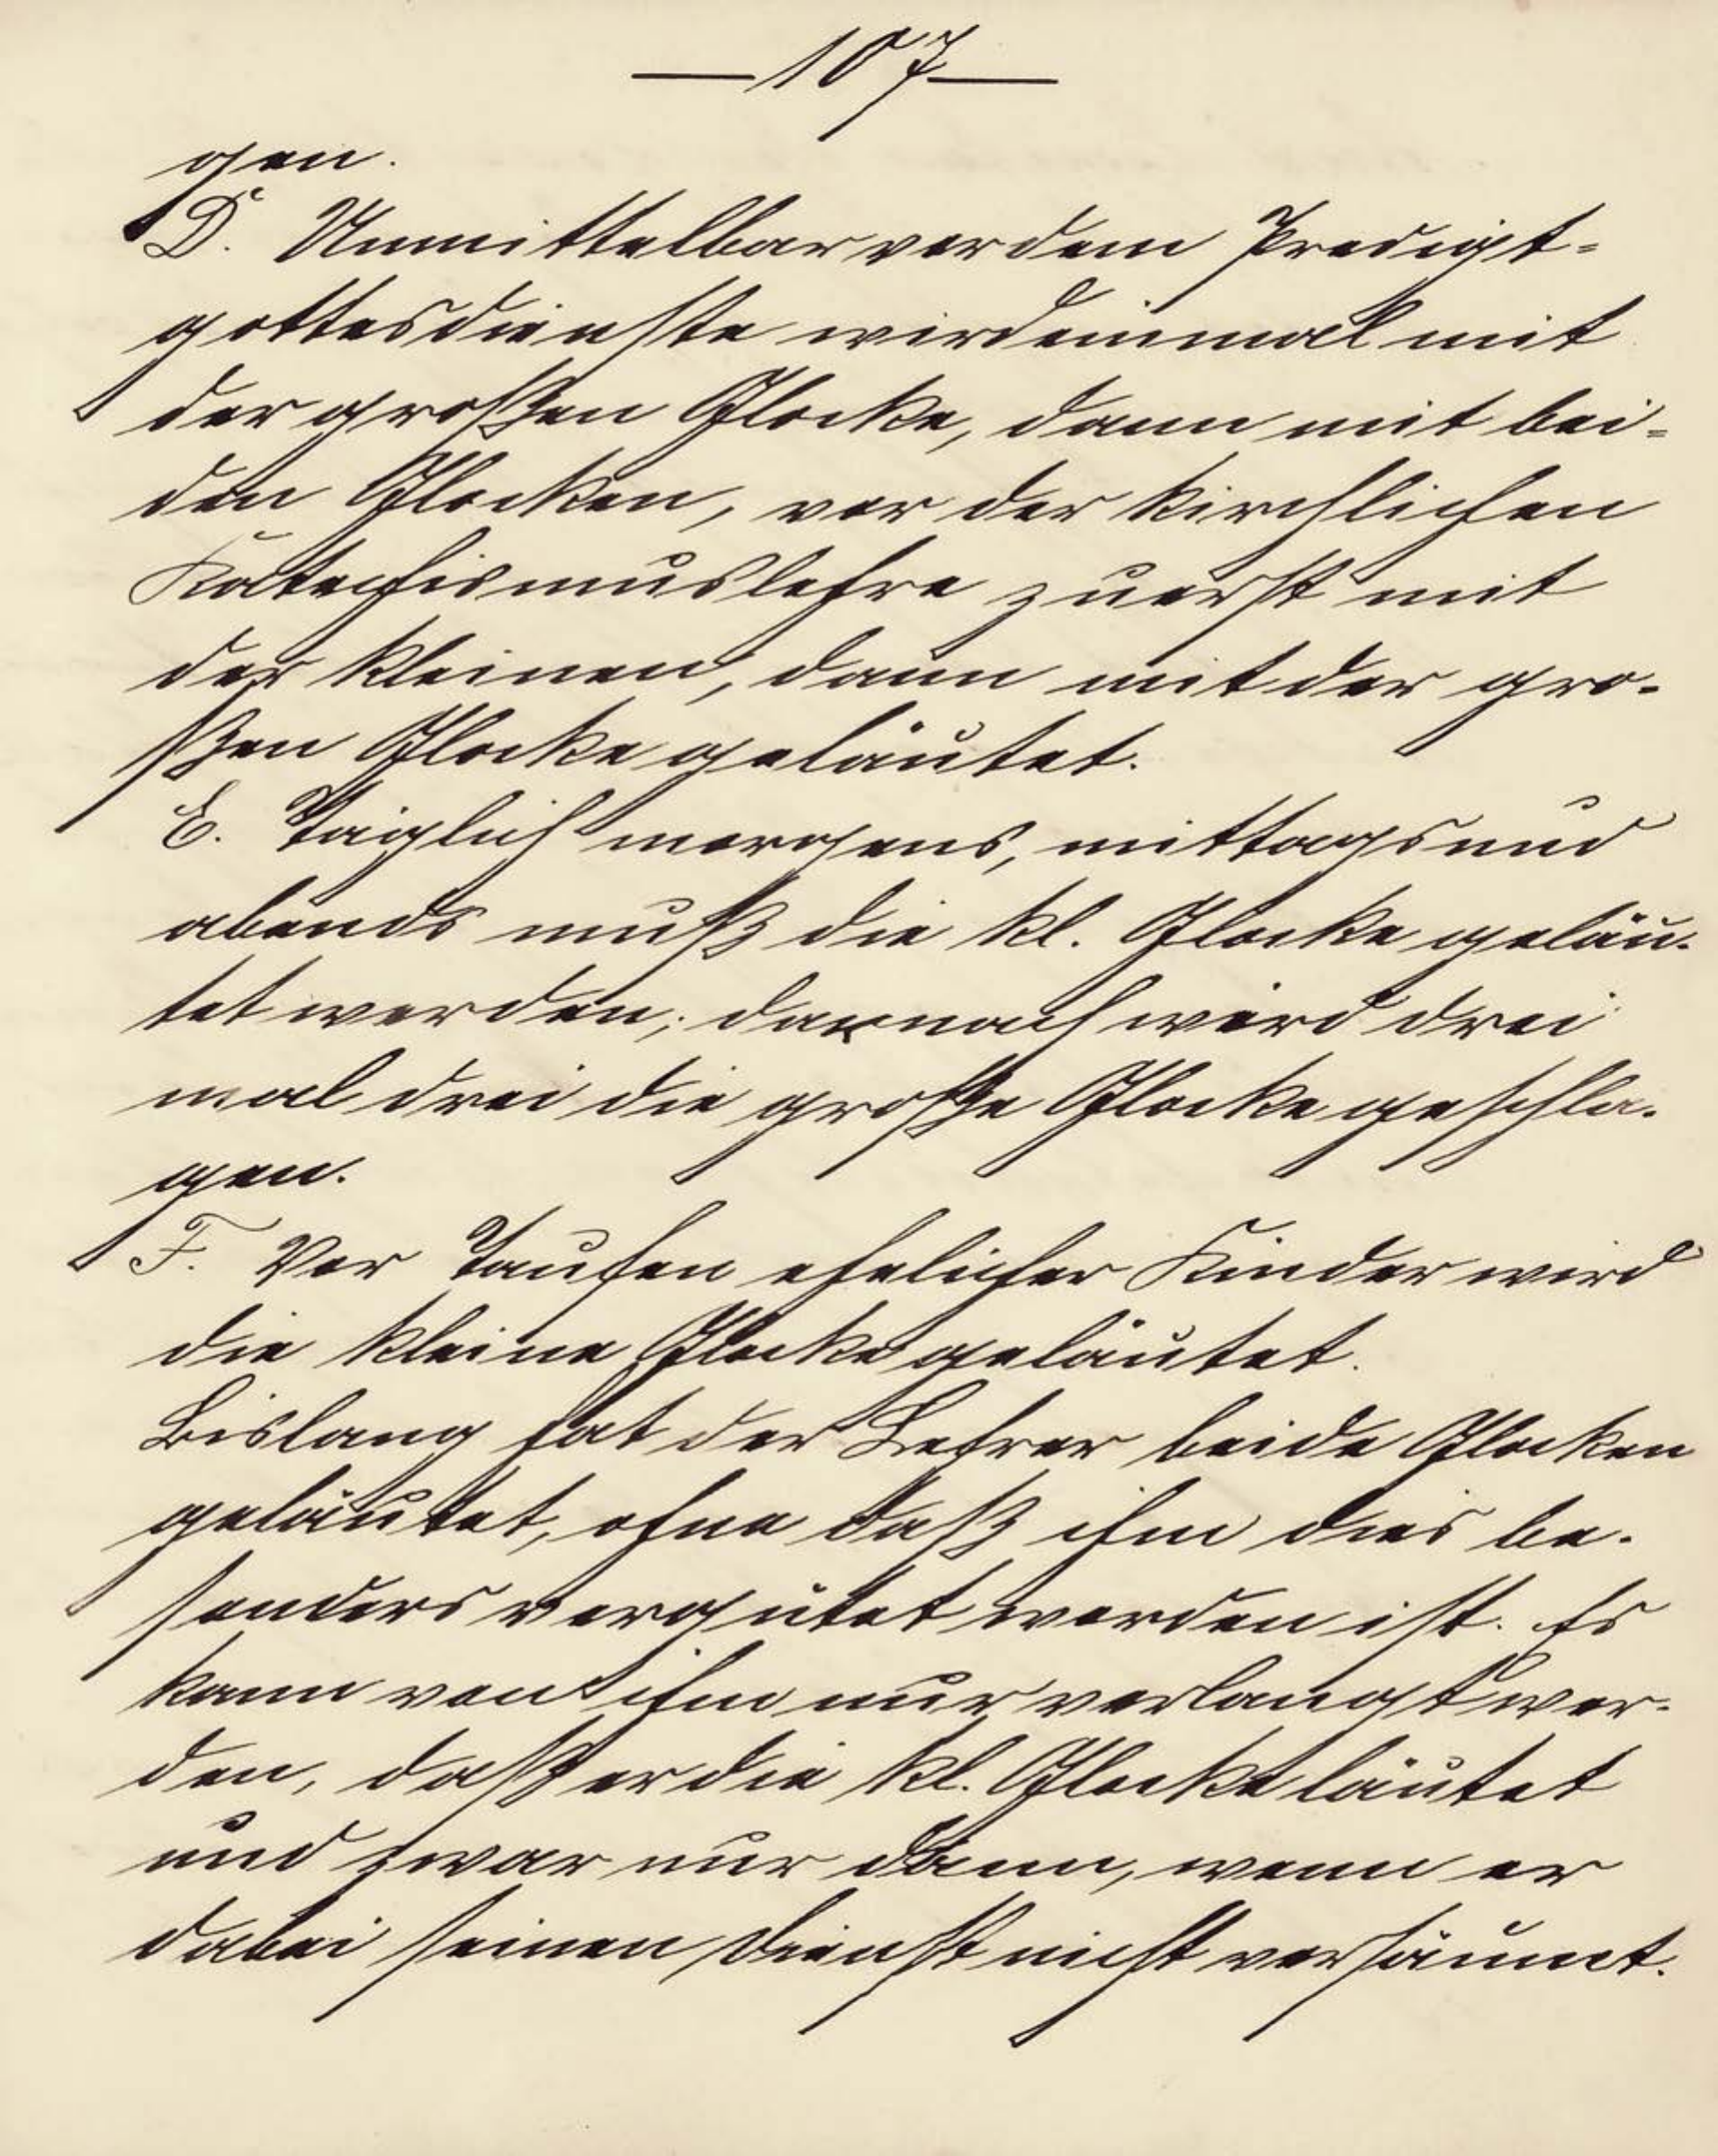 — 107 —
gen.
D. Unmittelbar vor dem Predigt=
gottesdienste wird einmal mit
der großen Glocke, dann mit bei=
den Glocken, vor der kirchlichen
Katechismuslehre zuerst mit
der kleinen, dann mit der gro-
ßen Glocke geläutet.
E. Täglich morgens, mittags und
abends muß die kl. Glocke geläu-
tet werden; darnach wird drei
mal drei die große Glocke geschla-
gen.
F. Vor Taufen ehelicher Kinder wird
die kleine Glocke geläutet.
Bislang hat der Lehrer beide Glocken
geläutet, ohne daß ihm dies be-
sonders vergütet worden ist. Es
kann von ihm nur verlangt wer-
den, daß er die kl. Glocke läutet
und zwar nur dann, wenn er
dabei seinen Dienst nicht versäumt.